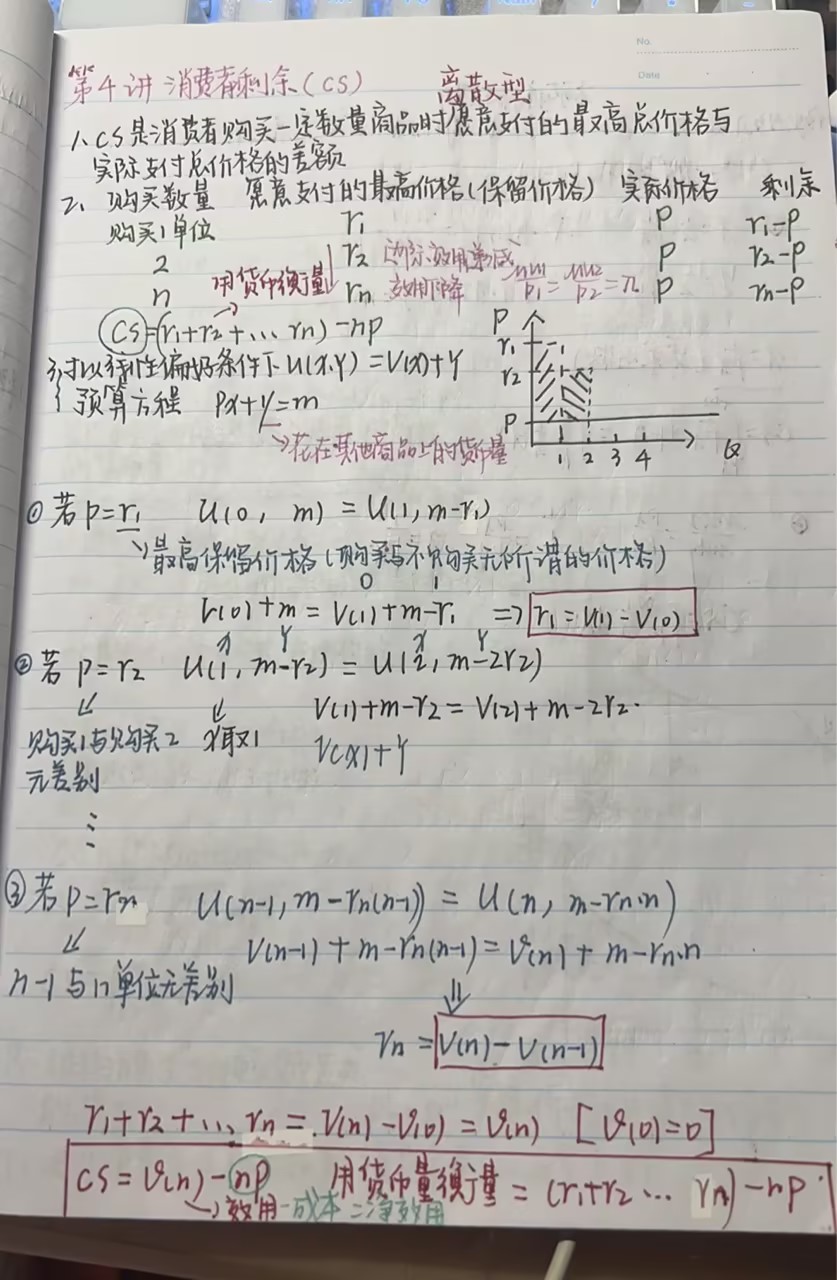 No.
Date
第4讲 消费者剩余(CS) 离散型
1、CS是消费者购买一定数量商品时愿意支付的最高总价格与
实际支付总价格的差额
2、购买数量 愿意支付的最高价格(保留价格) 实际价格 剩余
购买1单位 r₁ P r₁-P
2 r₂ 边际效用递减 P r₂-P
n 用货币衡量 rn 效用下降 MU1/P1=MU2/P2=λ P rn-P
CS=(r₁+r₂+... rn)-np
P
r₁
r₂
P
1 2 3 4 Q
3、拟线性偏好条件下 U(x,y)=V(x)+y
预算方程 Px+y=m
→花在其他商品上的货币量
① 若P=r₁ U(0, m)=U(1, m-r₁)
→最高保留价格(购买与不购买无所谓的价格)
0 1
V(0)+m=V(1)+m-r₁ ⇒ r₁=U(1)-V(0)
x y x y
② 若P=r₂ U(1, m-r₂)=U(2, m-2r₂)
V(1)+m-r₂=V(2)+m-2r₂.
购买1与购买2 x取1 V(x)+y
无差别
⋮
③ 若P=rn U(n-1, m-rn(n-1))=U(n, m-rn·n)
V(n-1)+m-rn(n-1)=V(n)+m-rn·n
n-1与n单位无差别
⇓
rn=V(n)-V(n-1)
r₁+r₂+... rn=V(n)-V(0)=V(n) [V(0)=0]
CS=V(n)-np 用货币量衡量=(r₁+r₂... rn)-np
→效用-成本=净效用